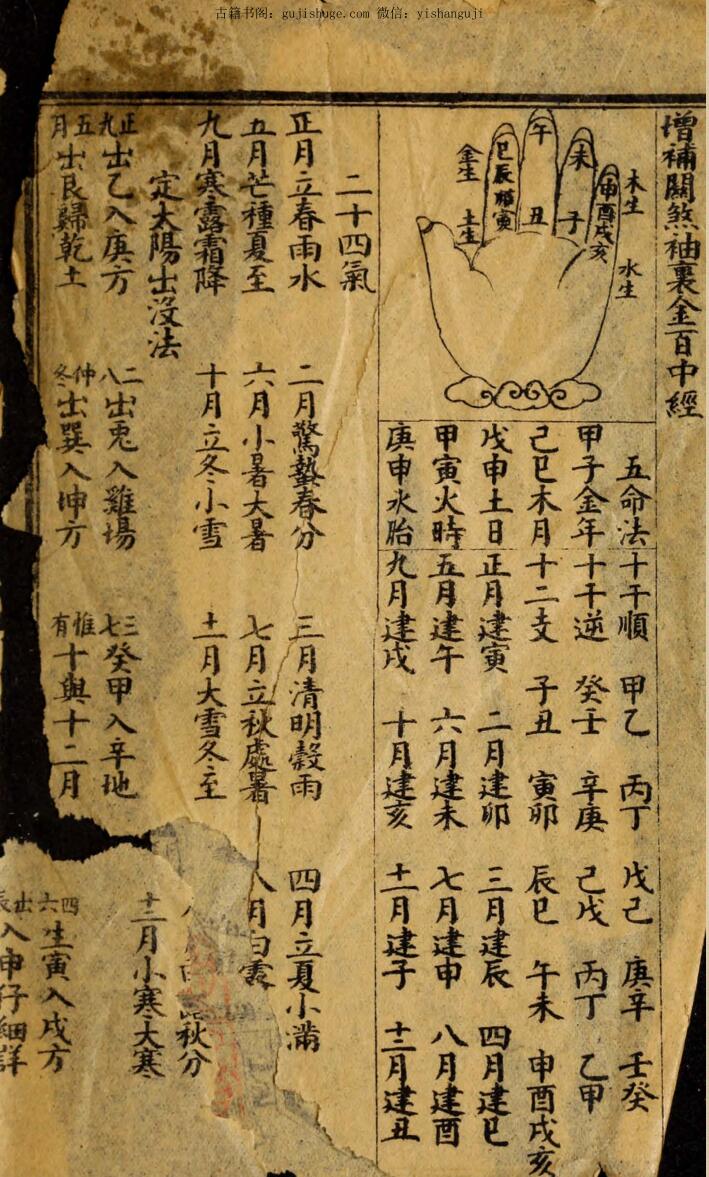 古籍书阁：gujishuge.com 微信：yishanguji
增補關煞袖裏金百中經
午
未
巳辰卯寅
丑
子
申酉戌亥
金生
土生
木生
水生
五命法
甲子金年
己巳木月
戊申土日
甲寅火時
庚申水胎
十干順 甲乙 丙丁 戊己 庚辛 壬癸
十干逆 癸壬 辛庚 己戊 丙丁 乙甲
十二支 子丑 寅卯 辰巳 午未 申酉戌亥
正月建寅 二月建卯 三月建辰 四月建巳
五月建午 六月建未 七月建申 八月建酉
九月建戌 十月建亥 十一月建子 十二月建丑
二十四氣
正月立春雨水 二月驚蟄春分 三月清明穀雨 四月立夏小滿
五月芒種夏至 六月小暑大暑 七月立秋處暑 八月白露
秋分
九月寒露霜降 十月立冬小雪 十一月大雪冬至 十二月小寒大寒
定太陽出沒法
正九出乙入庚方 二八出兎入雞場 三七癸甲入辛地 四六生寅入戌方
五月出艮歸乾土 仲冬出巽入坤方 惟有十與十二月 出辰入申仔細詳